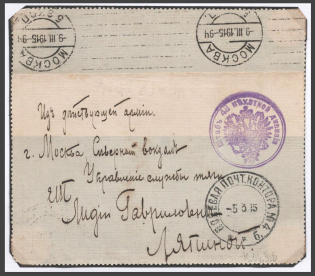 МОСКВА
-9 III 1915 -94
МОСКВА
-9 III 1915 -94
Изъ действующей армiи.
г. Москва Северный вокзалъ
Управленiе службы тяги
Лидiи Гавриловне
Лятиной
ПОЛЕВАЯ ПОЧТ. КОНТОРА № 49
-5 3 15